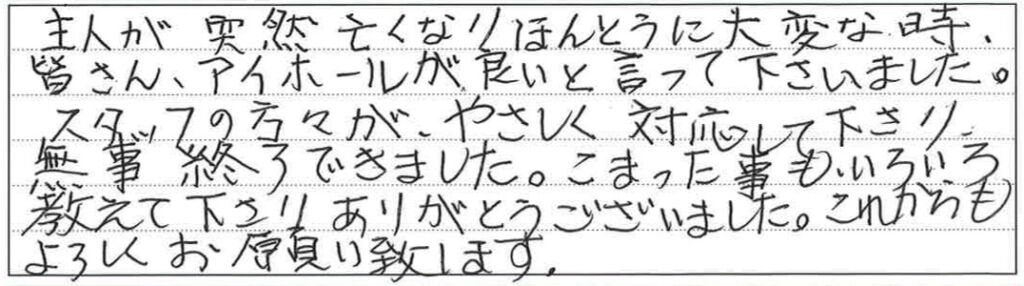 主人が突然亡くなりほんとうに大変な時、
皆さん、アイホールが良いと言って下さいました。
スタッフの方々が、やさしく対応して下さり、
無事終了できました。こまった事も、いろいろ
教えて下さりありがとうございました。これからも
よろしくお願い致します。